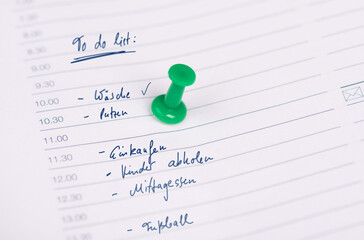 To do list:
9.00
9.30
10.00 - Wäsche ✓
10.30 - Putzen
11.00
11.30 - Einkaufen
12.00 - Kinder abholen
12.30 - Mittagessen
13.00
13.30 - Fußball